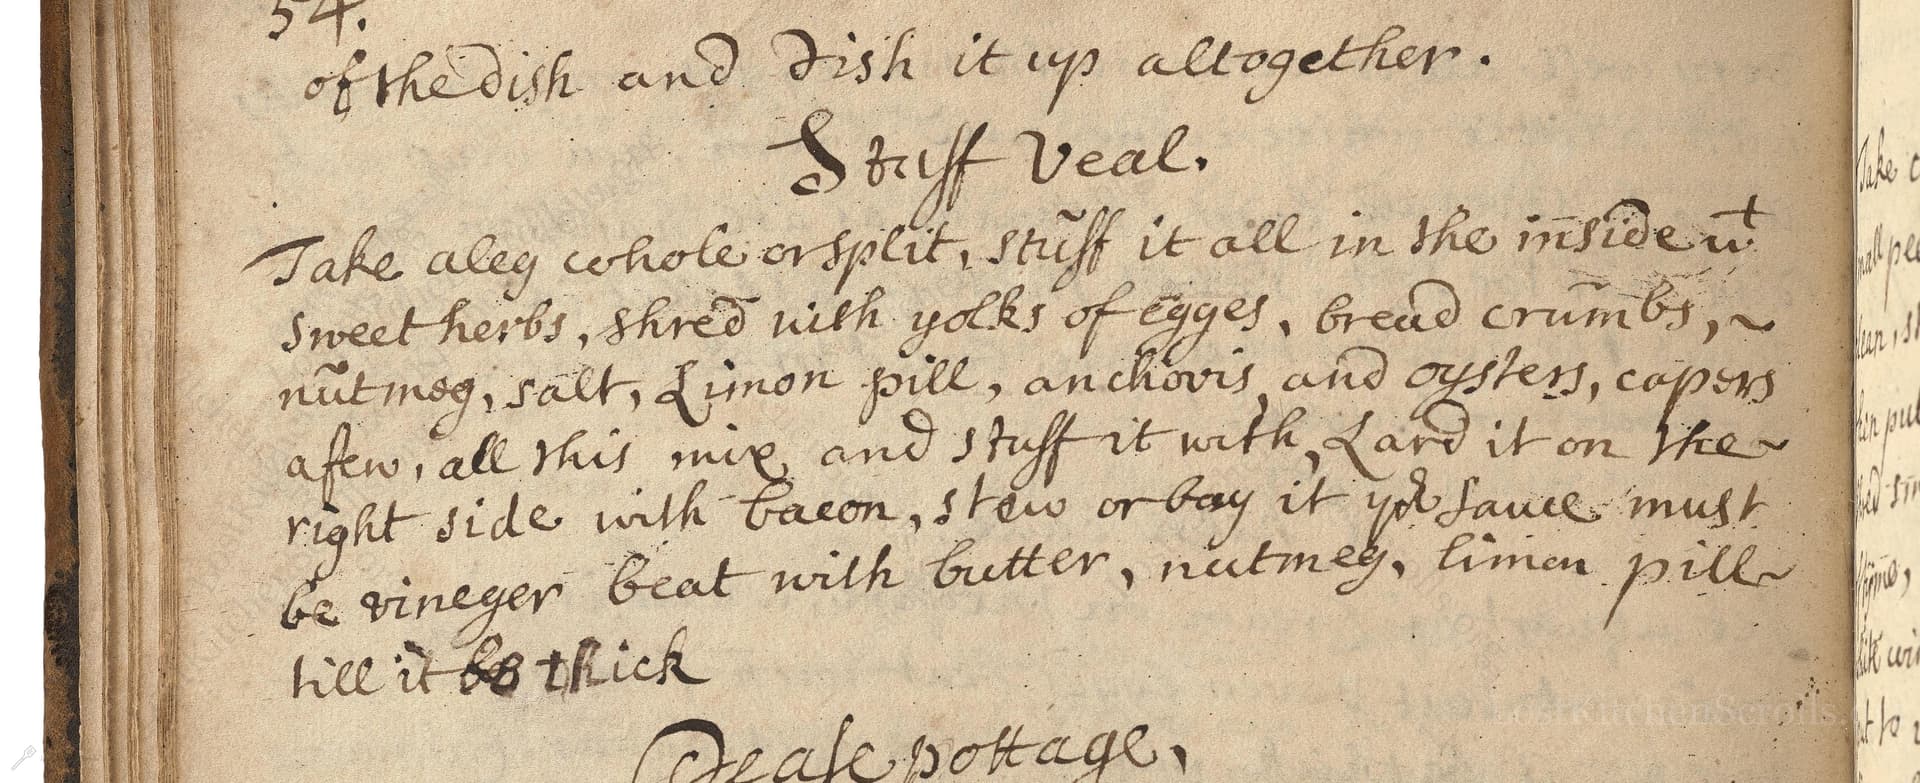 54.
of the dish and dish it up altogether.
Stuff Veal.
Take aleg whole or split, stuff it all in the inside wt
sweet herbs, shred with yolks of egges, bread crumbs, ~
nutmeg, salt, Limon pill, anchovis, and oysters, capers
afew, all this mix and stuff it with, Lard it on the~
right side with bacon, stew or bay it yor sauce must
be vineger beat with butter, nutmeg, limon pill~
till it be thick
Pease pottage,
Take